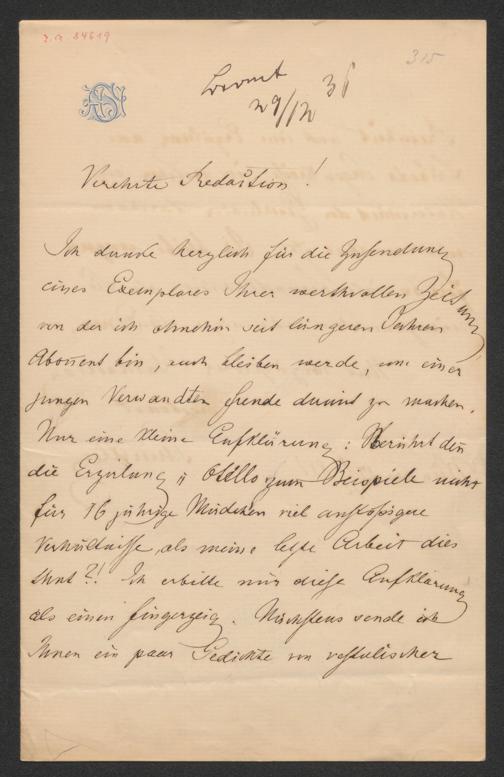 I.N. 84619
315
29/12 36
Verehrte Redaction!
Ich danke herzlich für die Zusendung
eines Exemplares Ihrer werthvollen Zeitung
von der ich ohnehin seit längeren Jahren
Abonent bin, auch bleiben werde, um einer
jungen Verwandten freude damit zu machen.
Nur eine kleine Aufklärung: Berührt den
die Erzälung Otello zum Beispiele nicht
für 16 jährige Mädchen viel anstößigere
Verhältniße, als meine letzte Arbeit dies
thut?! Ich erbitte mir diese Aufklärung
als einen fingerzeig. Nächstens sende ich
Ihnen ein paar Gedichte von vestalischer